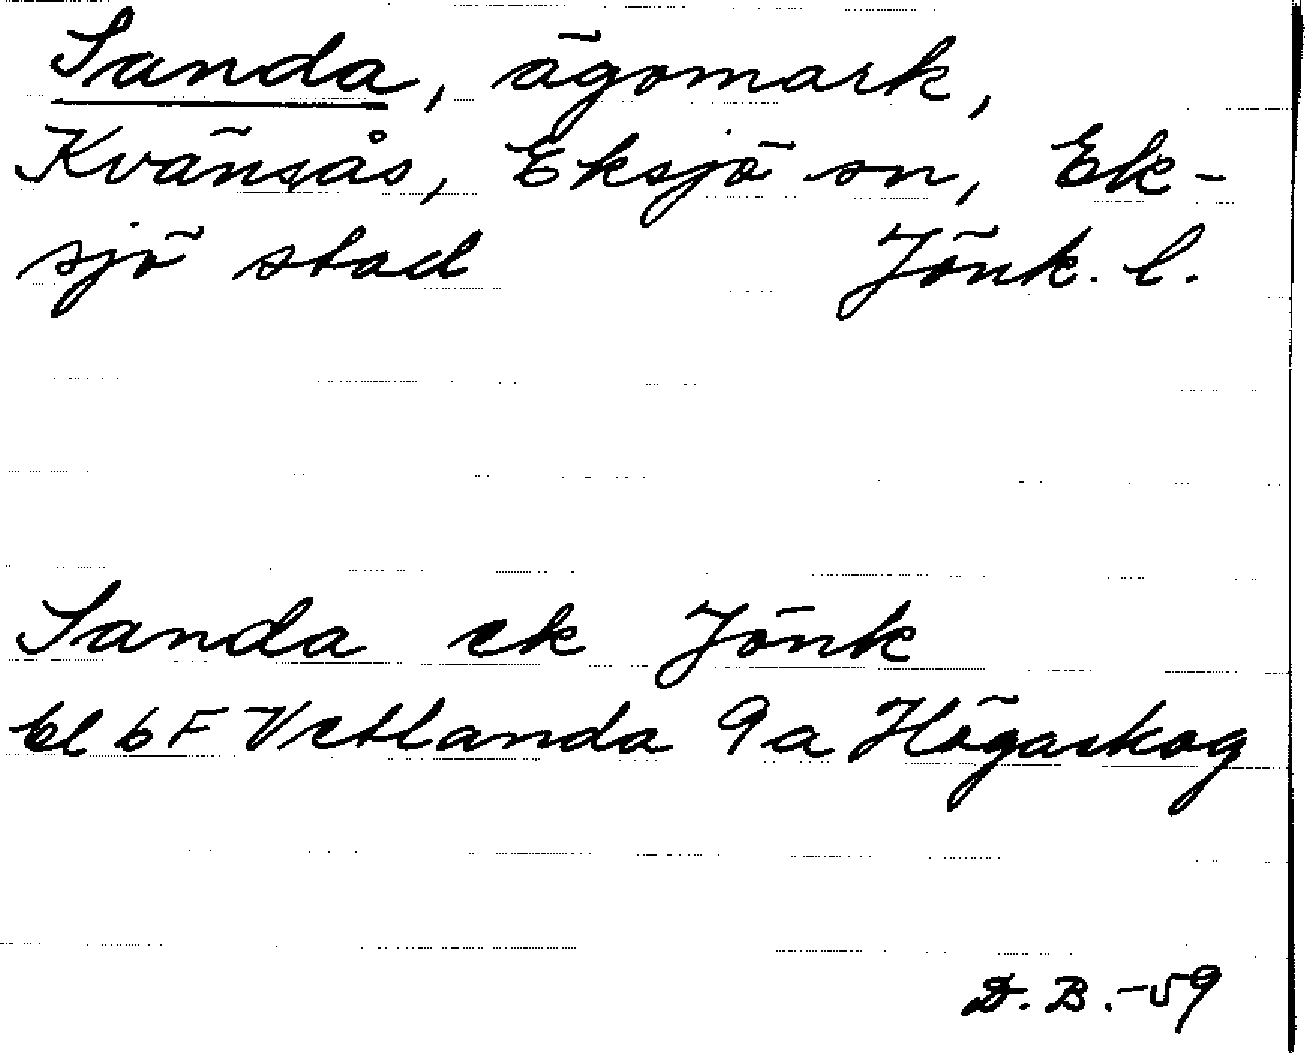 Sanda, ägomark,
Kvänsås, Eksjö sn, Ek-
sjö stad Jönk. l.
Sanda ek Jönk
bl 6F Vetlanda 9a Högaskog
D. B. -59